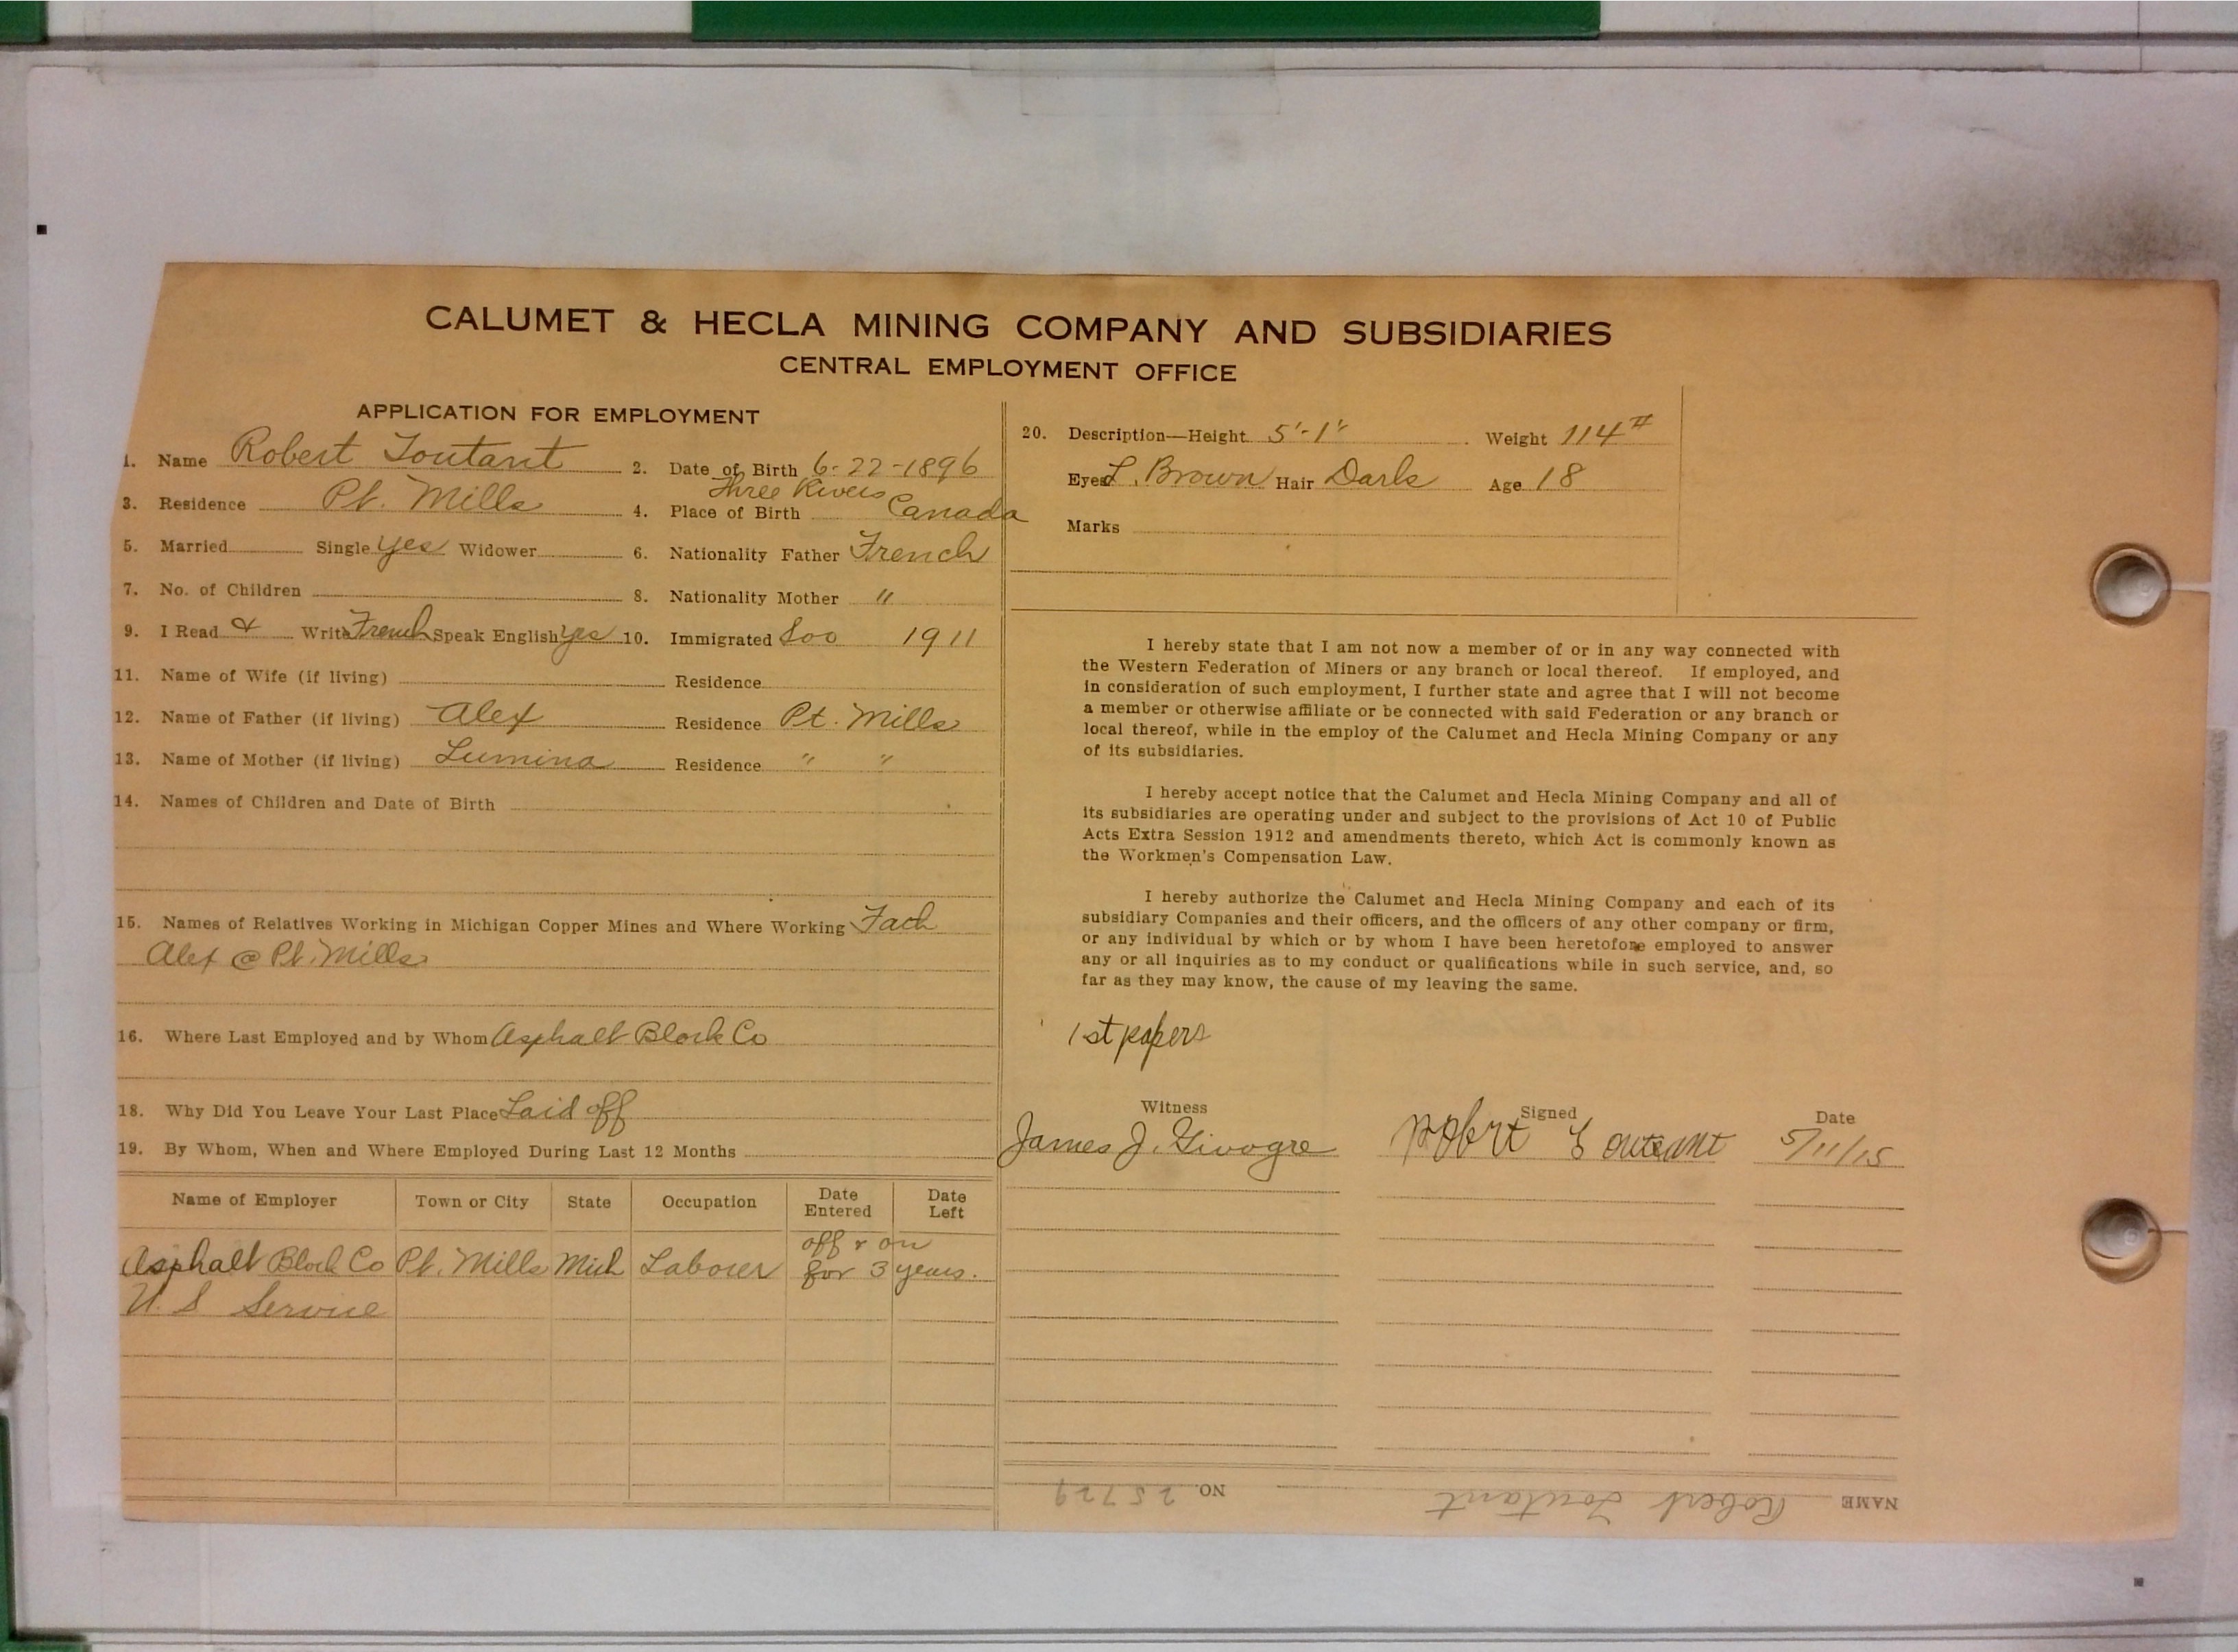 CALUMET & HECLA MINING COMPANY AND SUBSIDIARIES
CENTRAL EMPLOYMENT OFFICE
APPLICATION FOR EMPLOYMENT
1. Name Robert Toutant 2. Date of Birth 6-22-1896
3. Residence Pt. Mills 4. Place of Birth Three Rivers Canada
5. Married Single yes Widower 6. Nationality Father French
7. No. of Children 8. Nationality Mother "
9. I Read & Write French Speak English yes 10. Immigrated Soo 1911
11. Name of Wife (if living) Residence
12. Name of Father (if living) Alex Residence Pt. Mills
13. Name of Mother (if living) Lumina Residence " "
14. Names of Children and Date of Birth
15. Names of Relatives Working in Michigan Copper Mines and Where Working Fath
Alex @ Pt. Mills
16. Where Last Employed and by Whom Asphalt Block Co
18. Why Did You Leave Your Last Place Laid off
19. By Whom, When and Where Employed During Last 12 Months
Name of Employer Town or City State Occupation Date Entered Date Left
Asphalt Block Co Pt. Mills Mich Laborer off & on for 3 years.
U. S Service
20. Description—Height 5'-1" Weight 114#
Eyes L. Brown Hair Dark Age 18
Marks
I hereby state that I am not now a member of or in any way connected with
the Western Federation of Miners or any branch or local thereof. If employed, and
in consideration of such employment, I further state and agree that I will not become
a member or otherwise affiliate or be connected with said Federation or any branch or
local thereof, while in the employ of the Calumet and Hecla Mining Company or any
of its subsidiaries.
I hereby accept notice that the Calumet and Hecla Mining Company and all of
its subsidiaries are operating under and subject to the provisions of Act 10 of Public
Acts Extra Session 1912 and amendments thereto, which Act is commonly known as
the Workmen's Compensation Law.
I hereby authorize the Calumet and Hecla Mining Company and each of its
subsidiary Companies and their officers, and the officers of any other company or firm,
or any individual by which or by whom I have been heretofore employed to answer
any or all inquiries as to my conduct or qualifications while in such service, and, so
far as they may know, the cause of my leaving the same.
1st papers
Witness Signed Date
James J. Robert Toutant 5/11/15
NAME Robert Toutant NO. 25729